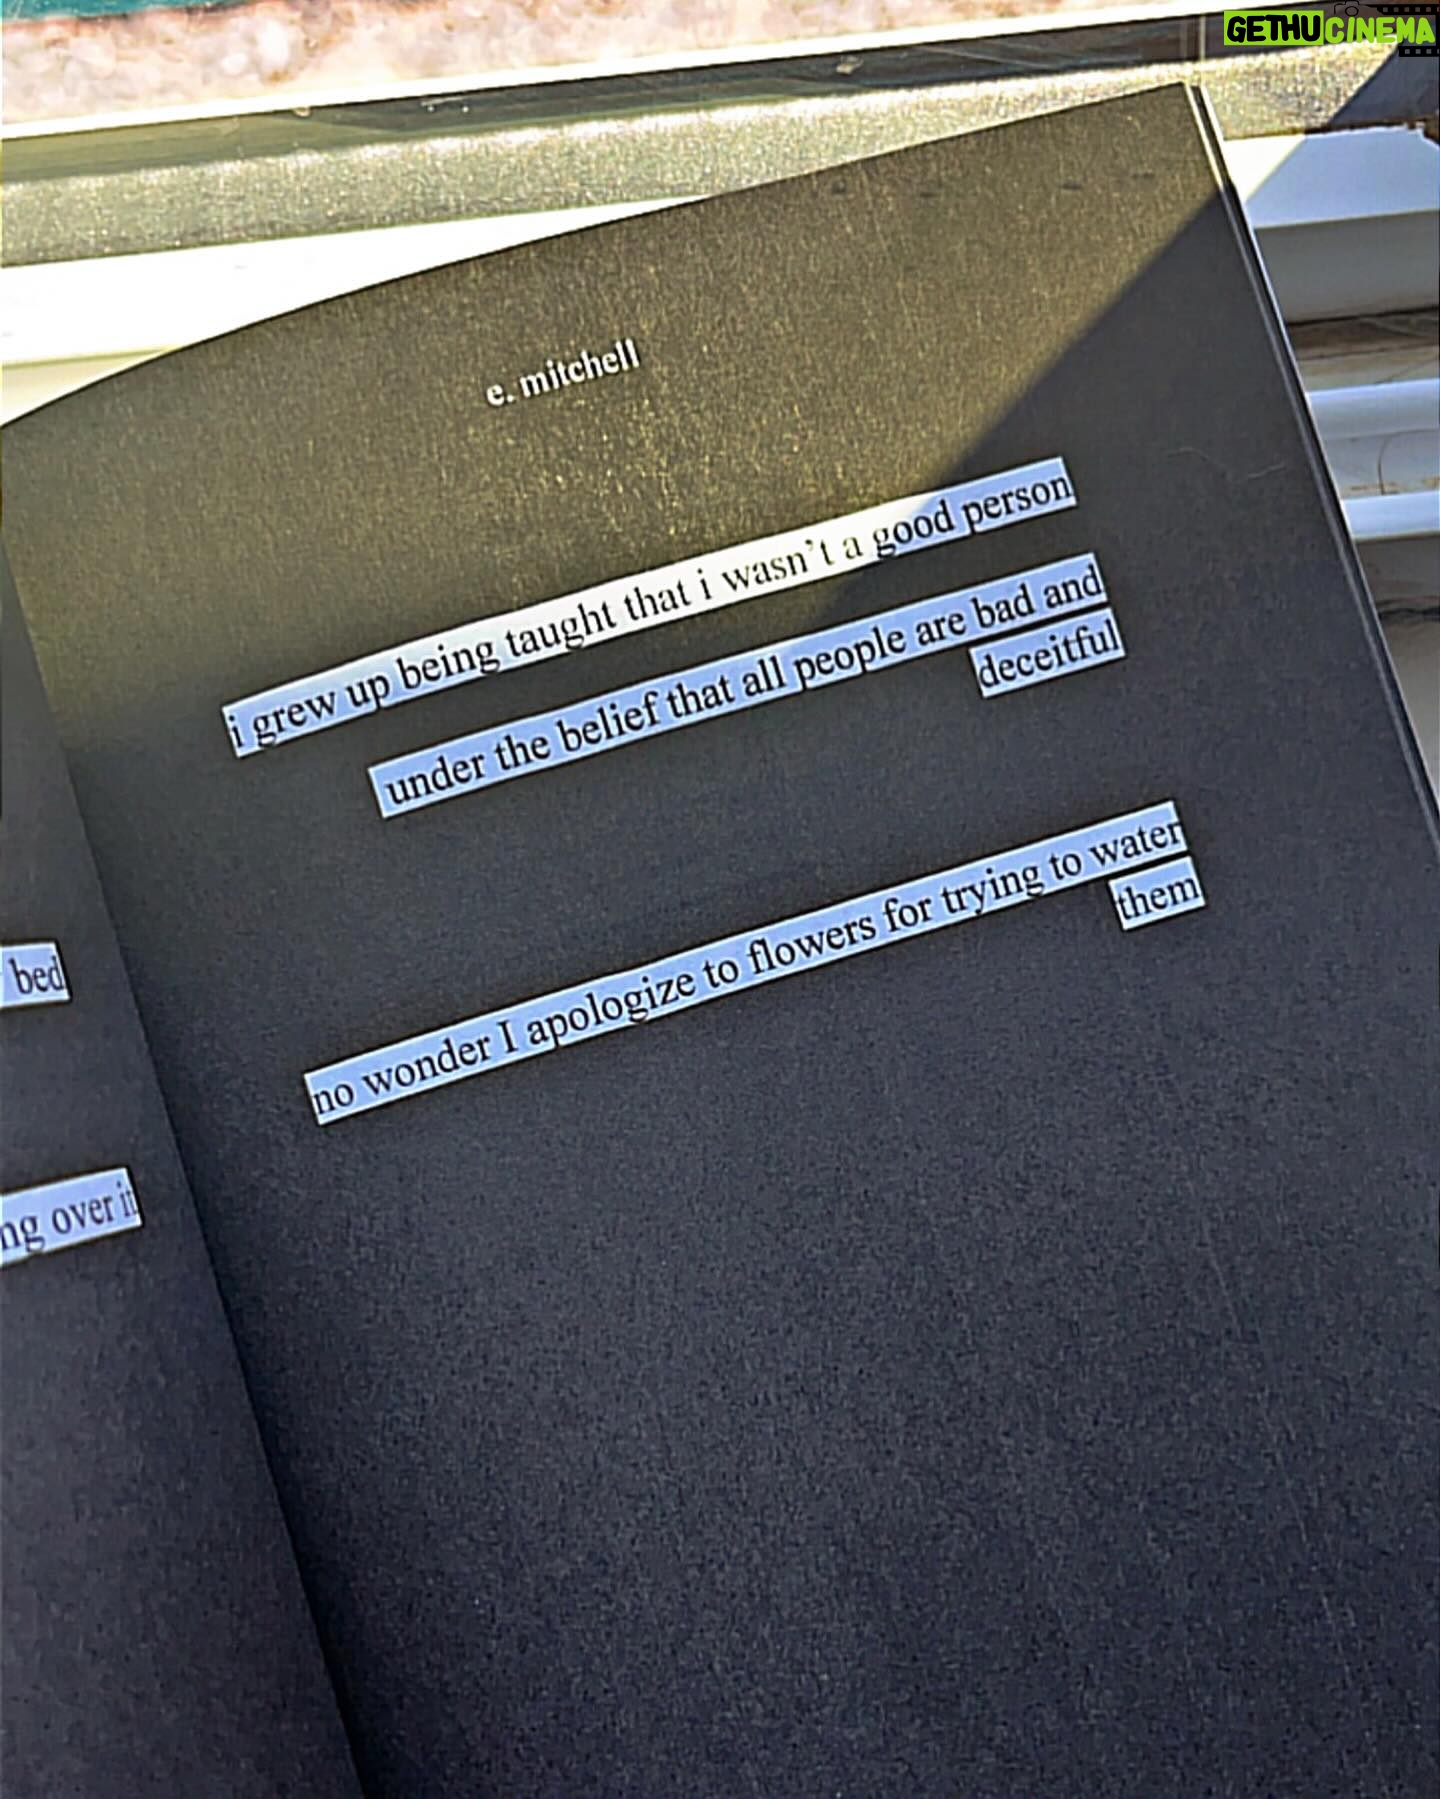 GETHUCINEMA
e. mitchell
i grew up being taught that i wasn't a good person
under the belief that all people are bad and
deceitful
no wonder I apologize to flowers for trying to water
them
bed
ng over it